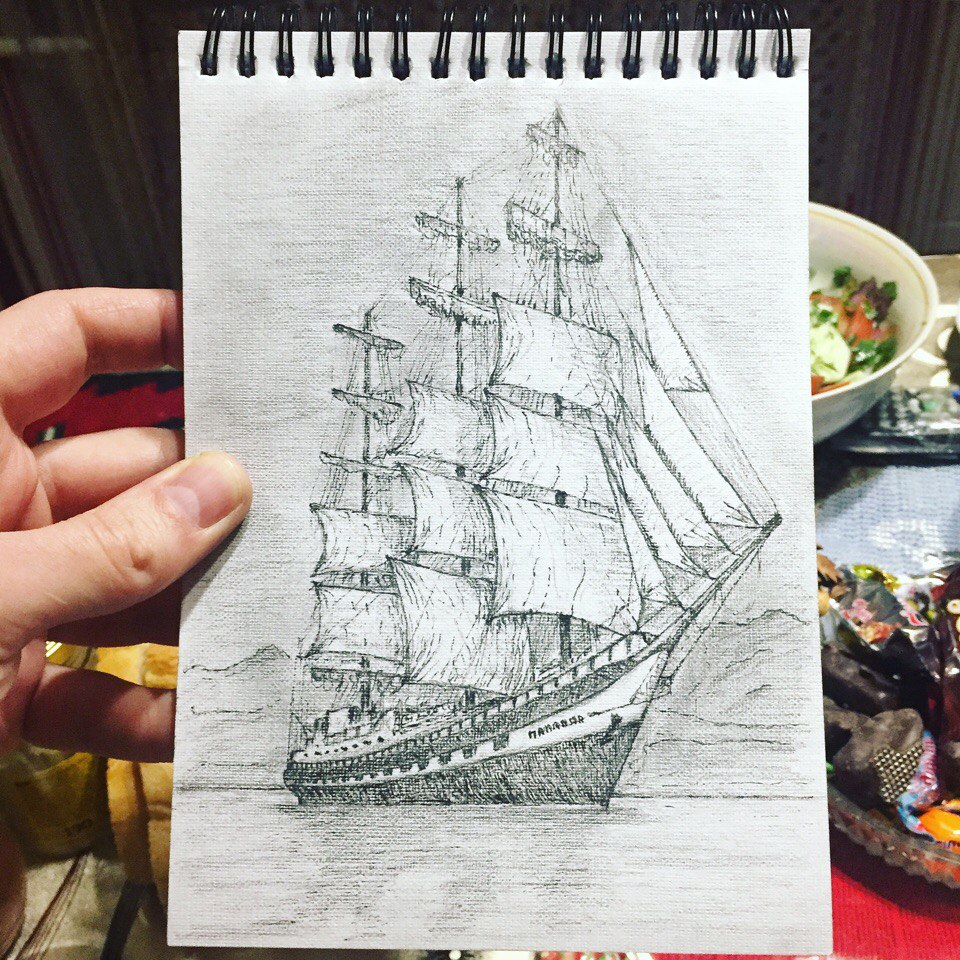 ПАЛЛАДА